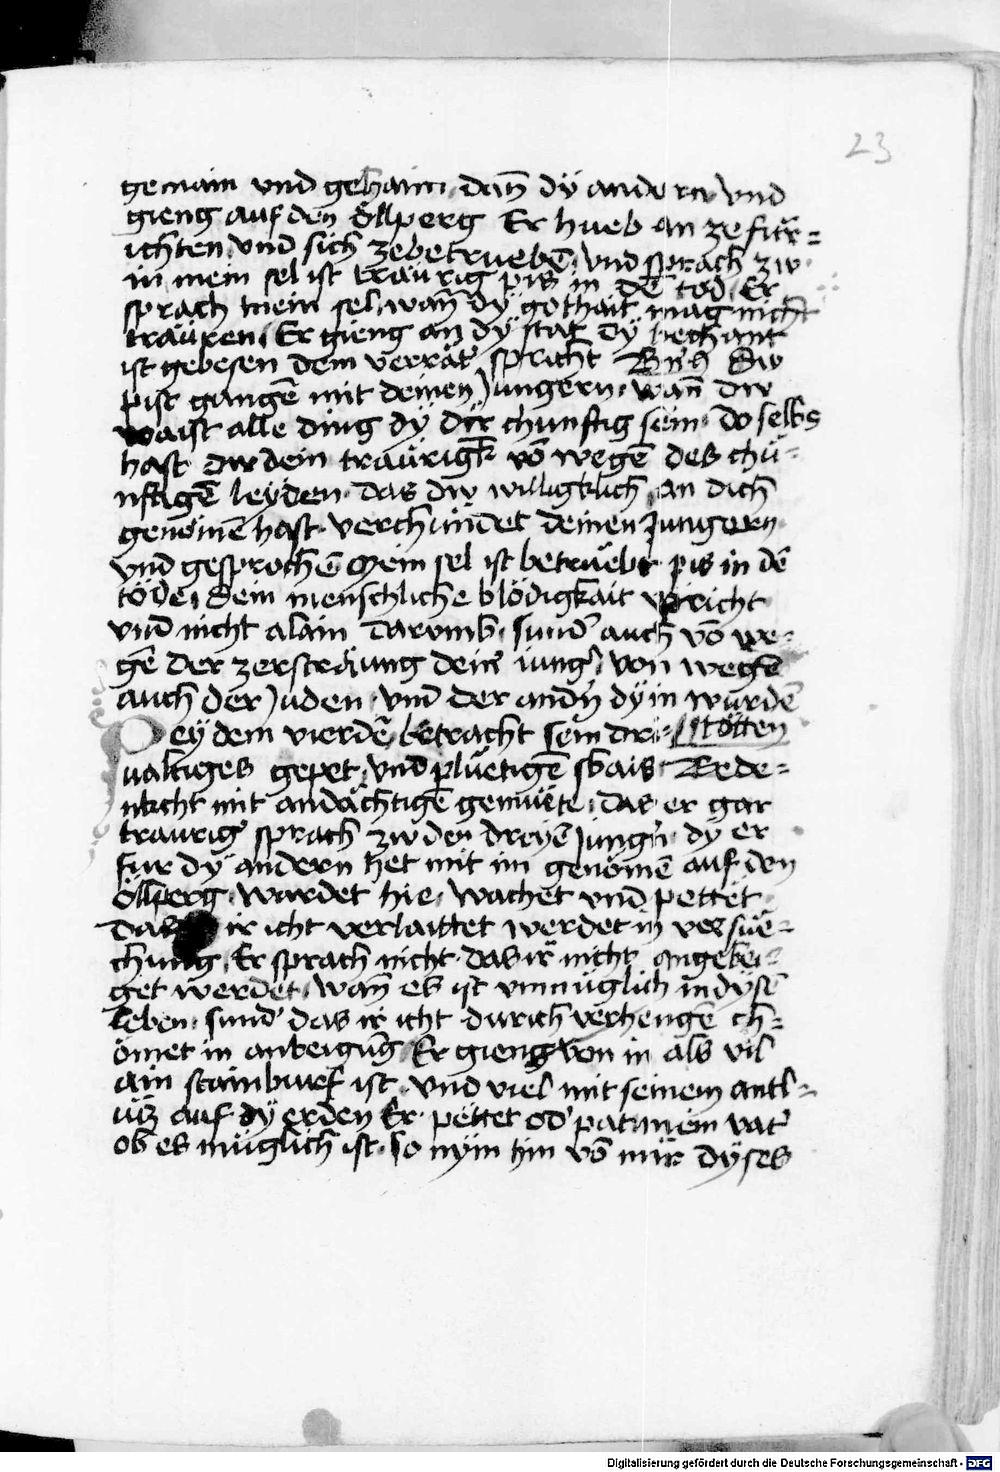 23
gemain vnd gehaim dañ dÿ andern vnd
gieng auf den Öllperg Er hueb an ze fürr=
ichten vnd sich ze betruebē vnd sprach zw
in mein sel ist träurig pis in dē tod Er
sprach mein sel wañ dÿ gothait mag nicht
träuren Er gieng an dÿ stat dÿ bechant
ist gebesen dem verrät' spricht Diw
pist gangē mit deinen Jungern wañ dw
waist alle ding dÿ dir chunftig sein do selbs
hast dw dein träurigk vō wegē des chü=
nftigē leyden das dw willigklich an dich
genömē hast verchündet deinen Jungern
vnd gesprochē Mein sel ist betruebt pis in dē
töde dein menschliche blödigkait spricht
vnd nicht alain darumb sund' auch vō we=
gē der zersträung dein' iung' von wegē
auch der Juden vnd der andn dy in würdē
Pey dem vierdē betracht sein drÿ= tötten
ualtiges gepet vnd pluetigē sbais Bede=
nkcht mit andächtigē gemüete das er gar
traurig' sprach zw den dreyē Jung'n dy er
für dÿ andern het mit im genömē auf den
Öllperg wardet hie wachet vnd pettet
das ir icht verlaittet werdet in versue=
chung Er sprach nicht das ir nicht angebei=
get werdet wañ es ist vnmüglich in dysē
leben sund' das ir icht durich verhengē ch=
ömet in anbeigūg Er gieng von in als vil
ain stainburf ist vnd viel mit seinem antl=
ütz auf dÿ erden Er pettet od' pat mein vat'
ob es müglich ist so nÿm hin vō mir dÿses
Digitalisierung gefördert durch die Deutsche Forschungsgemeinschaft - DFG